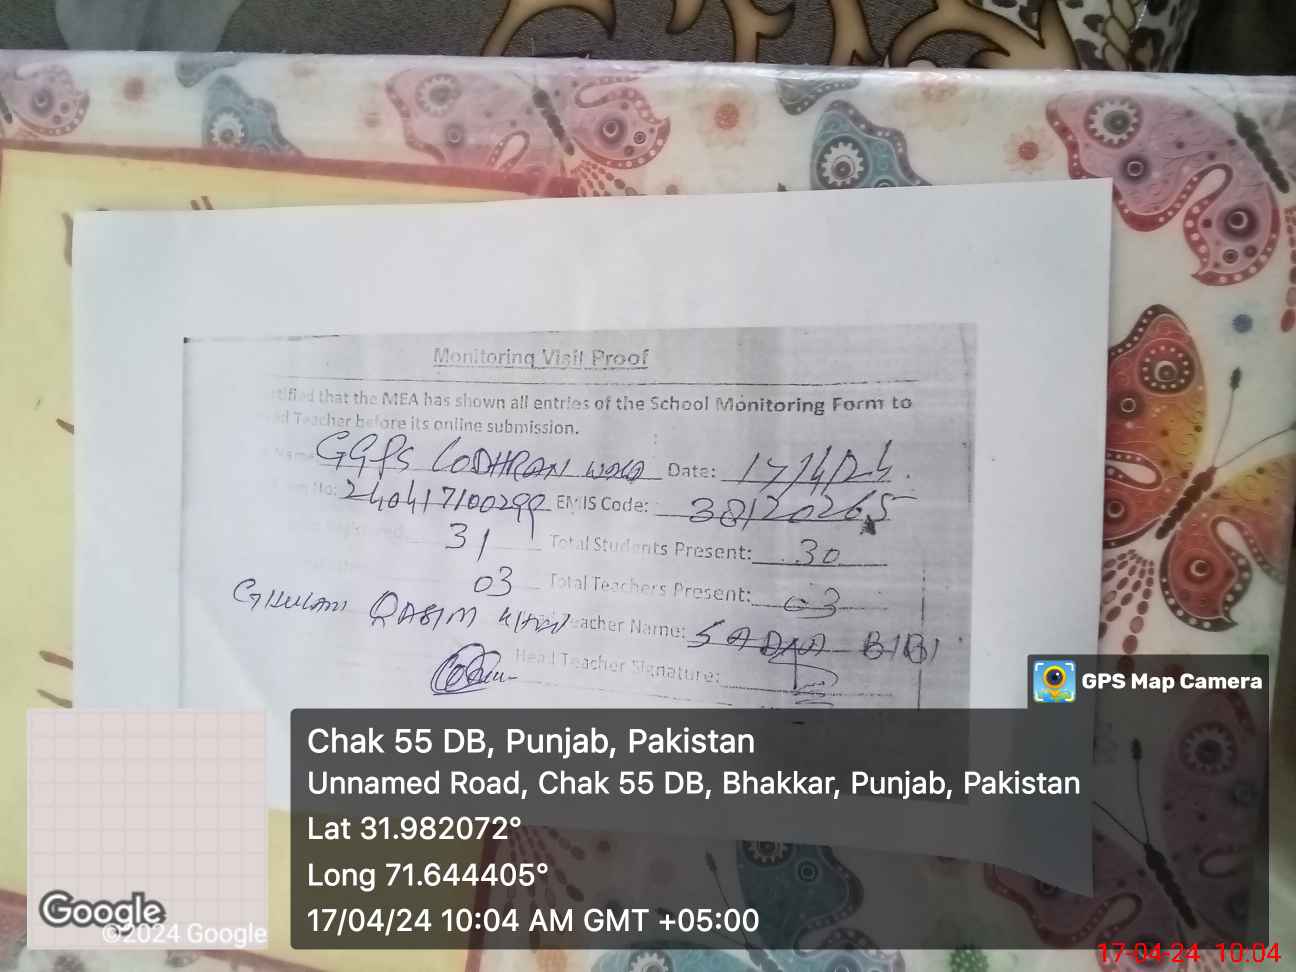 Monitoring Visit Proof
tified that the MEA has shown all entries of the School Monitoring Form to
ad Teacher before its online submission.
Name GGPS LODHRAN WALA Date: 17/4/24
No: 240417100299 EMIS Code: 38120265
31 Total Students Present: 30
03 Total Teachers Present: 03
GHULAM QASIM KHAN eacher Name: SADIA BIBI
Head Teacher Signature:
GPS Map Camera
Chak 55 DB, Punjab, Pakistan
Unnamed Road, Chak 55 DB, Bhakkar, Punjab, Pakistan
Lat 31.982072°
Long 71.644405°
17/04/24 10:04 AM GMT +05:00
Google
©2024 Google
17-04-24 10:04